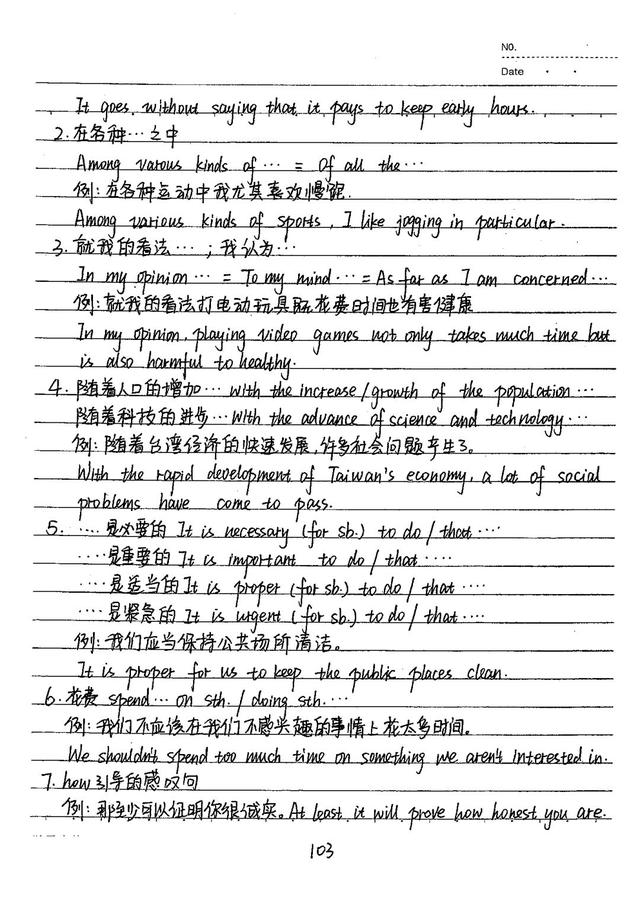 NO.
Date
It goes without saying that it pays to keep early hours.
2. 在各种…之中
Among varous kinds of … = Of all the …
例: 在各种运动中我尤其喜欢慢跑.
Among various kinds of sports, I like jogging in particular.
3. 就我的看法…; 我认为…
In my opinion … = To my mind … = As far as I am concerned …
例: 就我的看法打电动玩具既花费时间也有害健康
In my opinion, playing video games not only takes much time but
is also harmful to healthy.
4. 随着人口的增加… with the increase/growth of the population …
随着科技的进步… With the advance of science and technology …
例: 随着台湾经济的快速发展, 许多社会问题产生了。
With the rapid development of Taiwan's economy, a lot of social
problems have come to pass.
5. ….是必要的 It is necessary (for sb.) to do / that ….
….是重要的 It is important to do / that ….
….是适当的 It is proper (for sb.) to do / that ….
….是紧急的 It is urgent (for sb.) to do / that ….
例: 我们应当保持公共场所清洁。
It is proper for us to keep the public places clean.
6. 花费 spend … on sth. / doing sth. …
例: 我们不应该在我们不感兴趣的事情上花太多时间。
We shouldn't spend too much time on something we aren't interested in.
7. how引导的感叹句
例: 那至少可以证明你很诚实。At least it will prove how honest you are.
103